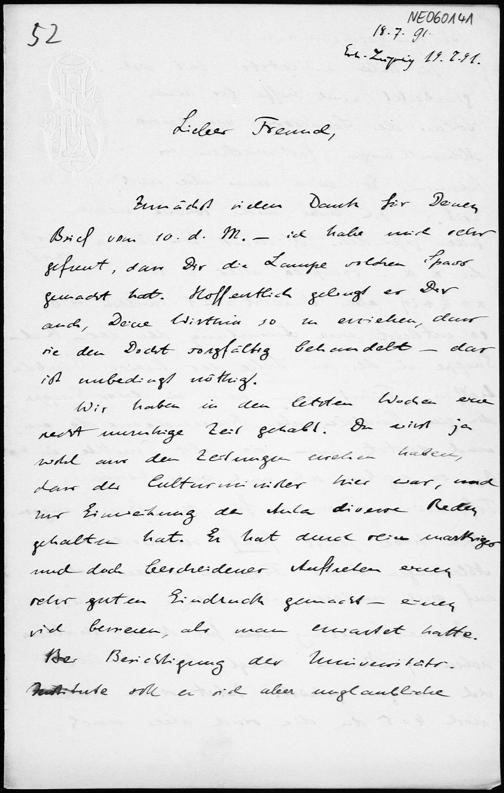 NE060141
52
18.7.91.
Erh. Leipzig 19.7.91.
Lieber Freund,
Zunächst vielen Dank für Deinen
Brief vom 10. d. M. – ich habe mich sehr
gefreut, dass Dir die Lampe solchen Spass
gemacht hat. Hoffentlich gelingt es Dir
auch, Deine Wirthin so zu erziehen, dass
sie den Docht sorgfältig behandelt – das
ist unbedingt nöthig.
Wir haben in den letzten Wochen eine
recht unruhige Zeit gehabt. Du wirst ja
wohl aus den Zeitungen ersehen haben,
dass der Cultusminister hier war, und
zur Einweihung der Aula diverse Reden
gehalten hat. Er hat durch sein markiges
und doch bescheidenes Auftreten einen
sehr guten Eindruck gemacht – einen
viel besseren, als man erwartet hatte.
Bei Besichtigung der Universitäts-
Institute soll er sich aber unglaubliche